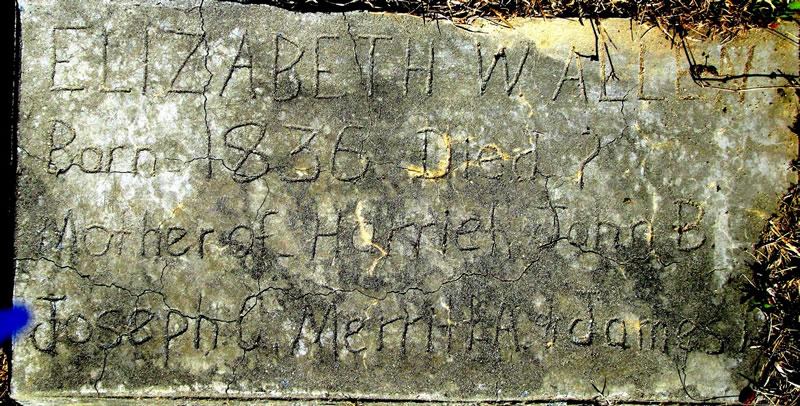 ELIZABETH WALLEN
Born 1836 Died ?
Mother of Harriet, John B.
Joseph C. Merritt A. & James